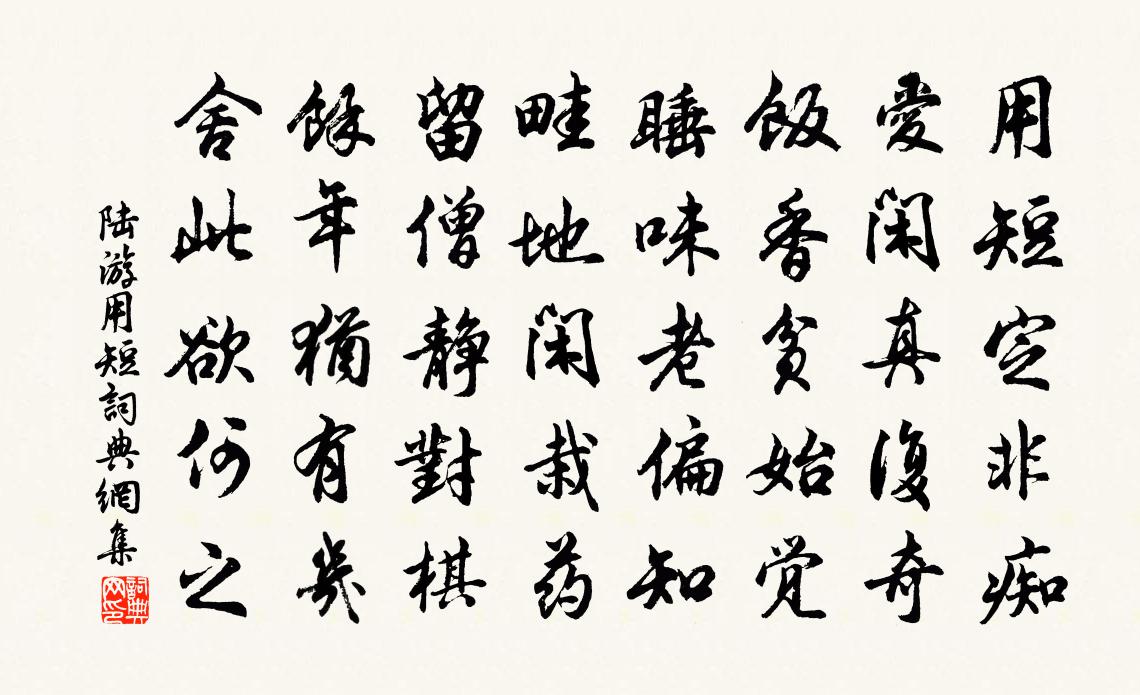 用短定非痴
愛閑真復奇
飯香貧始覚
睡味老偏知
畦地閑栽药
留僧静對棋
餘年猶有幾
舍此欲何之
陆游用短詞典網集
詞典网印